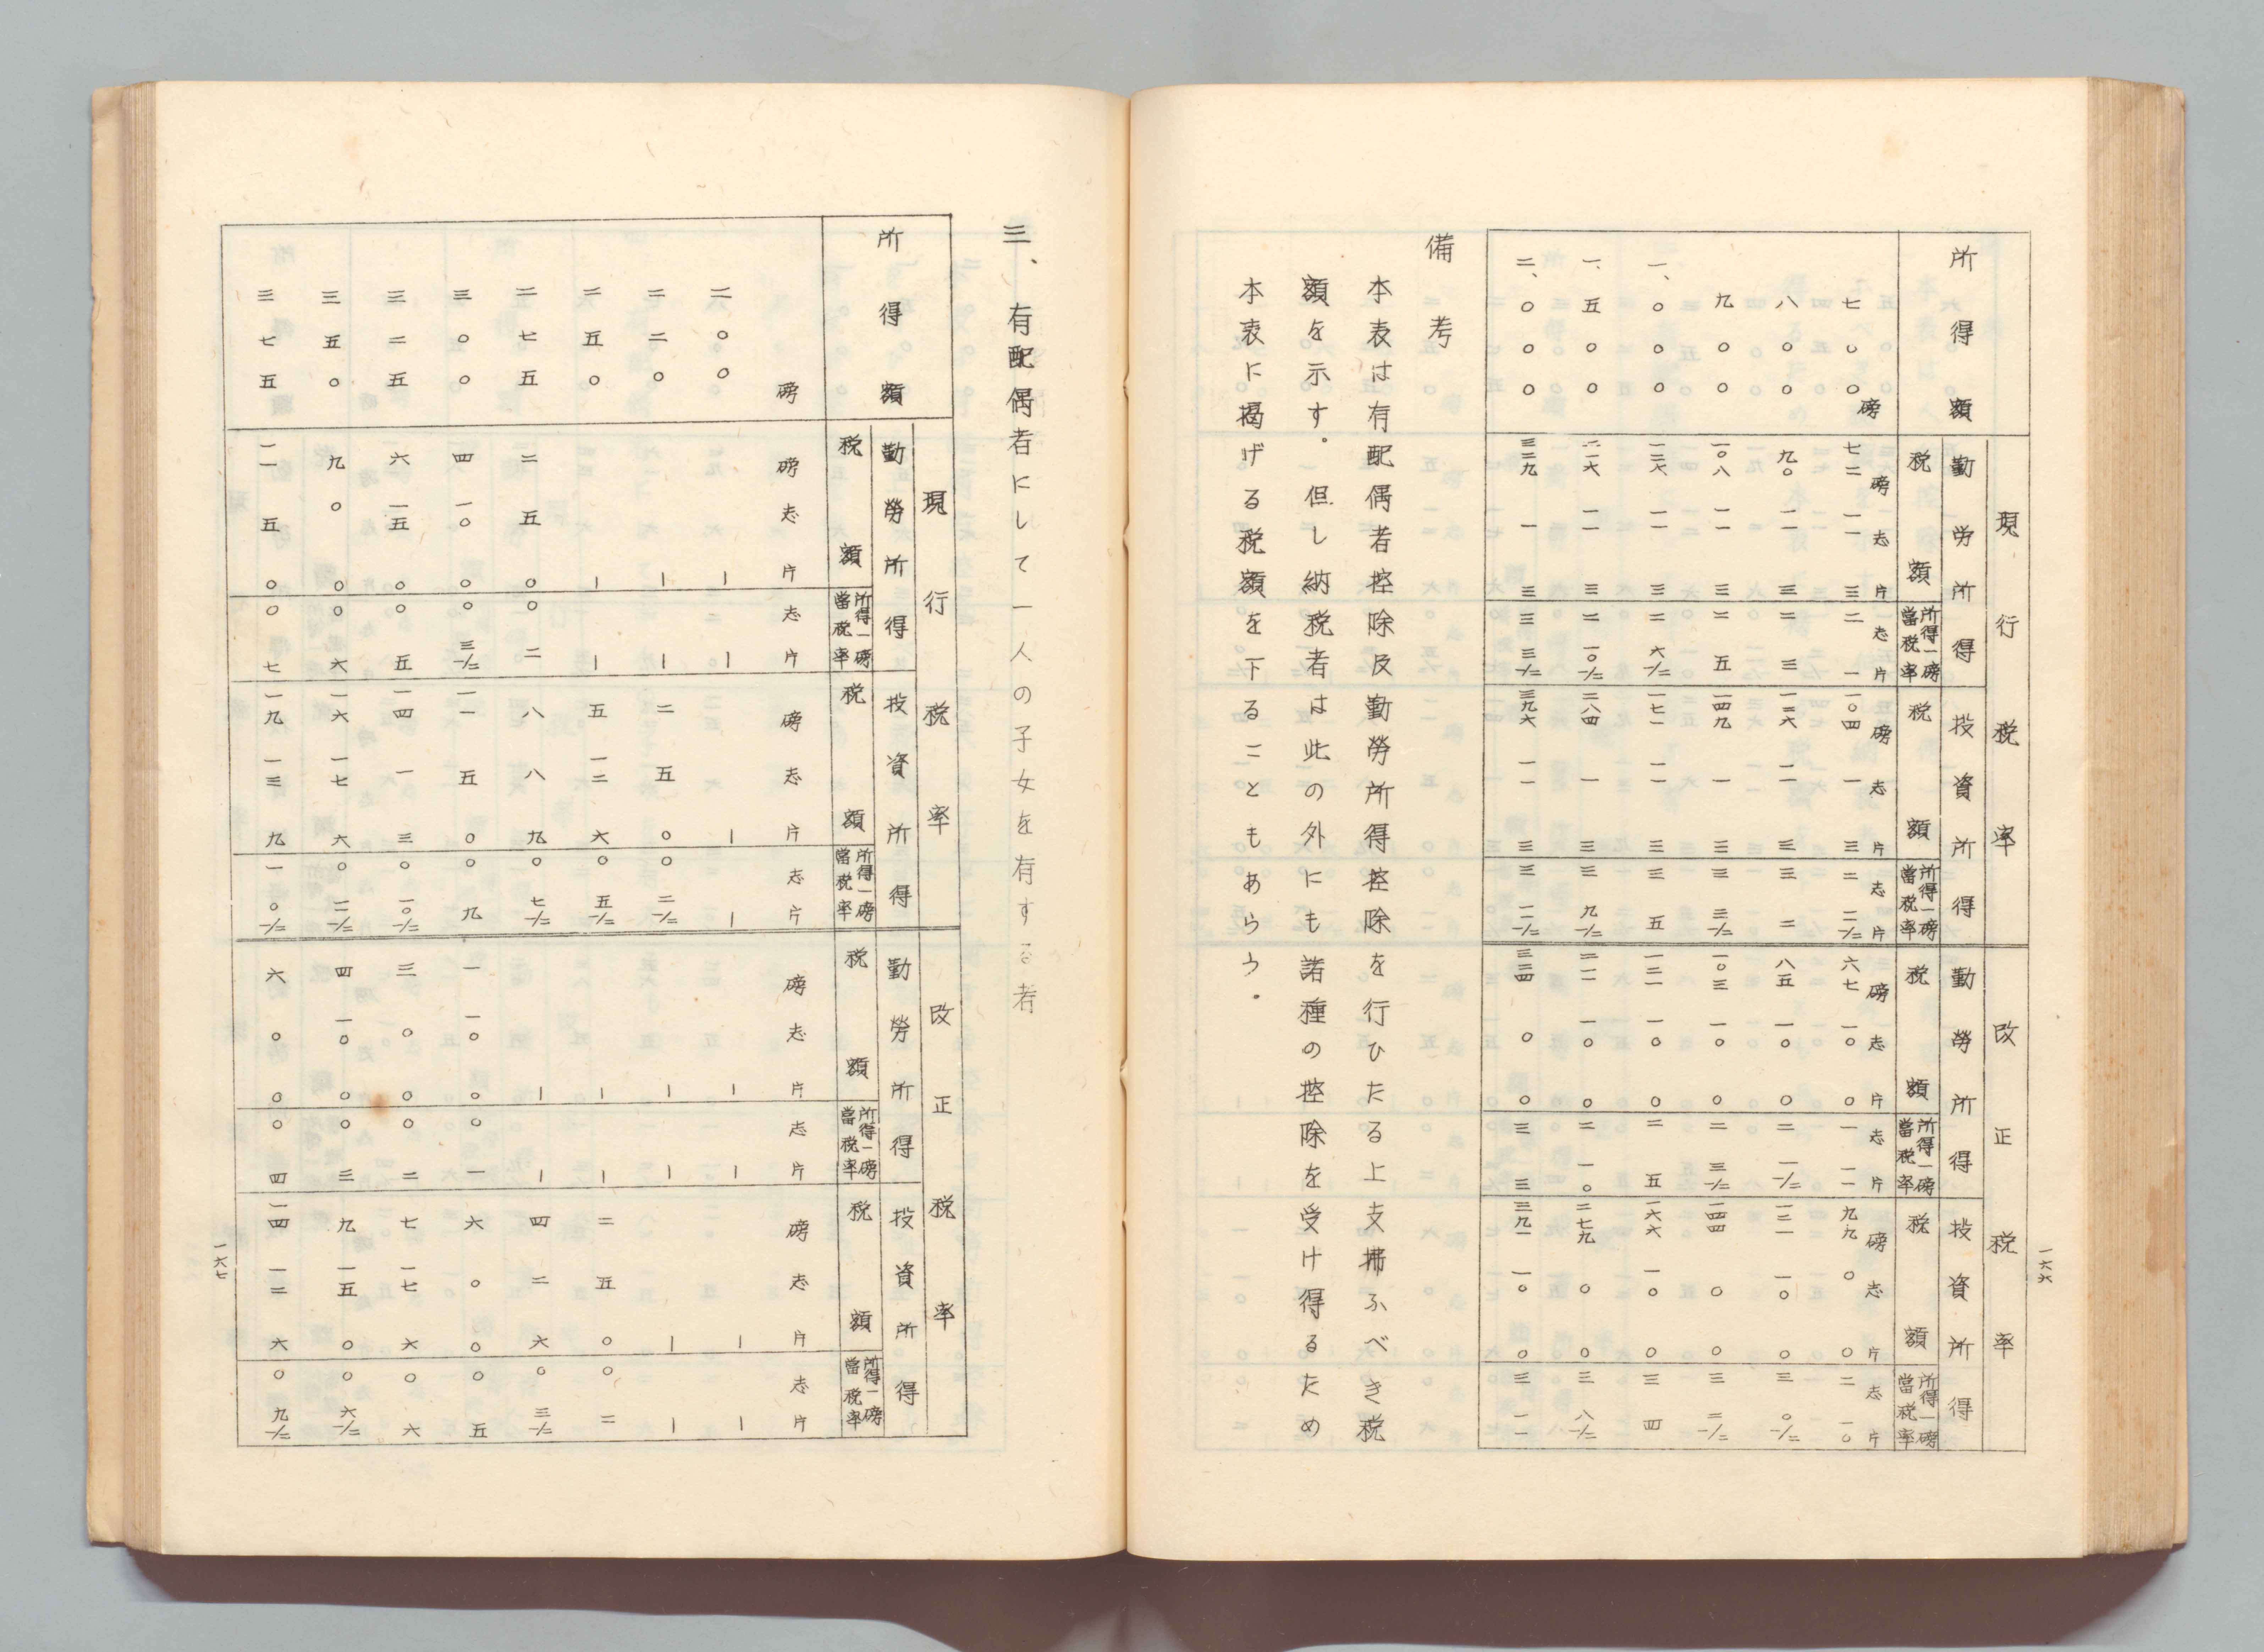 一六六
現行税率 改正税率
勤勞所得 投資所得 勤勞所得 投資所得
所得額 税額 所得一磅當税率 税額 所得一磅當税率 税額 所得一磅當税率 税額 所得一磅當税率
磅 磅 志 片 志 片 磅 志 片 志 片 磅 志 片 志 片 磅 志 片 志 片
七〇〇 七二 一一 三 二 一 一〇四 一 三 二 一一1/二 六七 一〇 〇 一 一一 九九 〇 〇 二 一〇
八〇〇 九〇 一一 三 二 三 一二六 一一 三 三 二 八五 一〇 〇 二 一1/二 一二一 一〇 〇 三 〇1/二
九〇〇 一〇八 一一 三 二 五 一四九 一 三 三 三1/二 一〇三 一〇 〇 二 三1/二 一四四 〇 〇 三 二1/二
一、〇〇〇 一二六 一一 三 二 六1/二 一七一 一一 三 三 五 一二一 一〇 〇 二 五 一六六 一〇 〇 三 四
一、五〇〇 二一六 一一 三 二 一〇1/二 二八四 一 三 三 九1/二 二一一 一〇 〇 二 一〇 二七九 〇 〇 三 八1/二
二、〇〇〇 三二九 一 三 三 三1/二 三九六 一一 三 三 一一1/二 三二四 〇 〇 三 三 三九一 一〇 〇 三 一一
備考
本表は有配偶者控除及勤勞所得控除を行ひたる上支拂ふべき税
額を示す。但し納税者は此の外にも諸種の控除を受け得るため
本表に揭げる税額を下ることもあらう。
三、有配偶者にして一人の子女を有する者
現行税率 改正税率
勤勞所得 投資所得 勤勞所得 投資所得
所得額 税額 所得一磅當税率 税額 所得一磅當税率 税額 所得一磅當税率 税額 所得一磅當税率
磅 磅 志 片 志 片 磅 志 片 志 片 磅 志 片 志 片 磅 志 片 志 片
二〇〇 ｜ ｜ ｜ ｜ ｜ ｜ ｜ ｜
二二〇 ｜ ｜ 二 五 〇 〇 二1/二 ｜ ｜ ｜ ｜
二五〇 ｜ ｜ 五 一二 六 〇 五1/二 ｜ ｜ 二 五 〇 〇 二
二七五 二 五 〇 〇 二 八 八 九 〇 七1/二 ｜ ｜ 四 二 六 〇 三1/二
三〇〇 四 一〇 〇 〇 三1/二 一一 五 〇 〇 九 一 一〇 〇 〇 一 六 〇 〇 〇 五
三二五 六 一五 〇 〇 五 一四 一 三 〇 一〇1/二 三 〇 〇 〇 二 七 一七 六 〇 六
三五〇 九 〇 〇 〇 六 一六 一七 六 〇 一一1/二 四 一〇 〇 〇 三 九 一五 〇 〇 六1/二
三七五 一一 五 〇 〇 七 一九 一三 九 一 〇1/二 六 〇 〇 〇 四 一四 一二 六 〇 九1/二
一六七